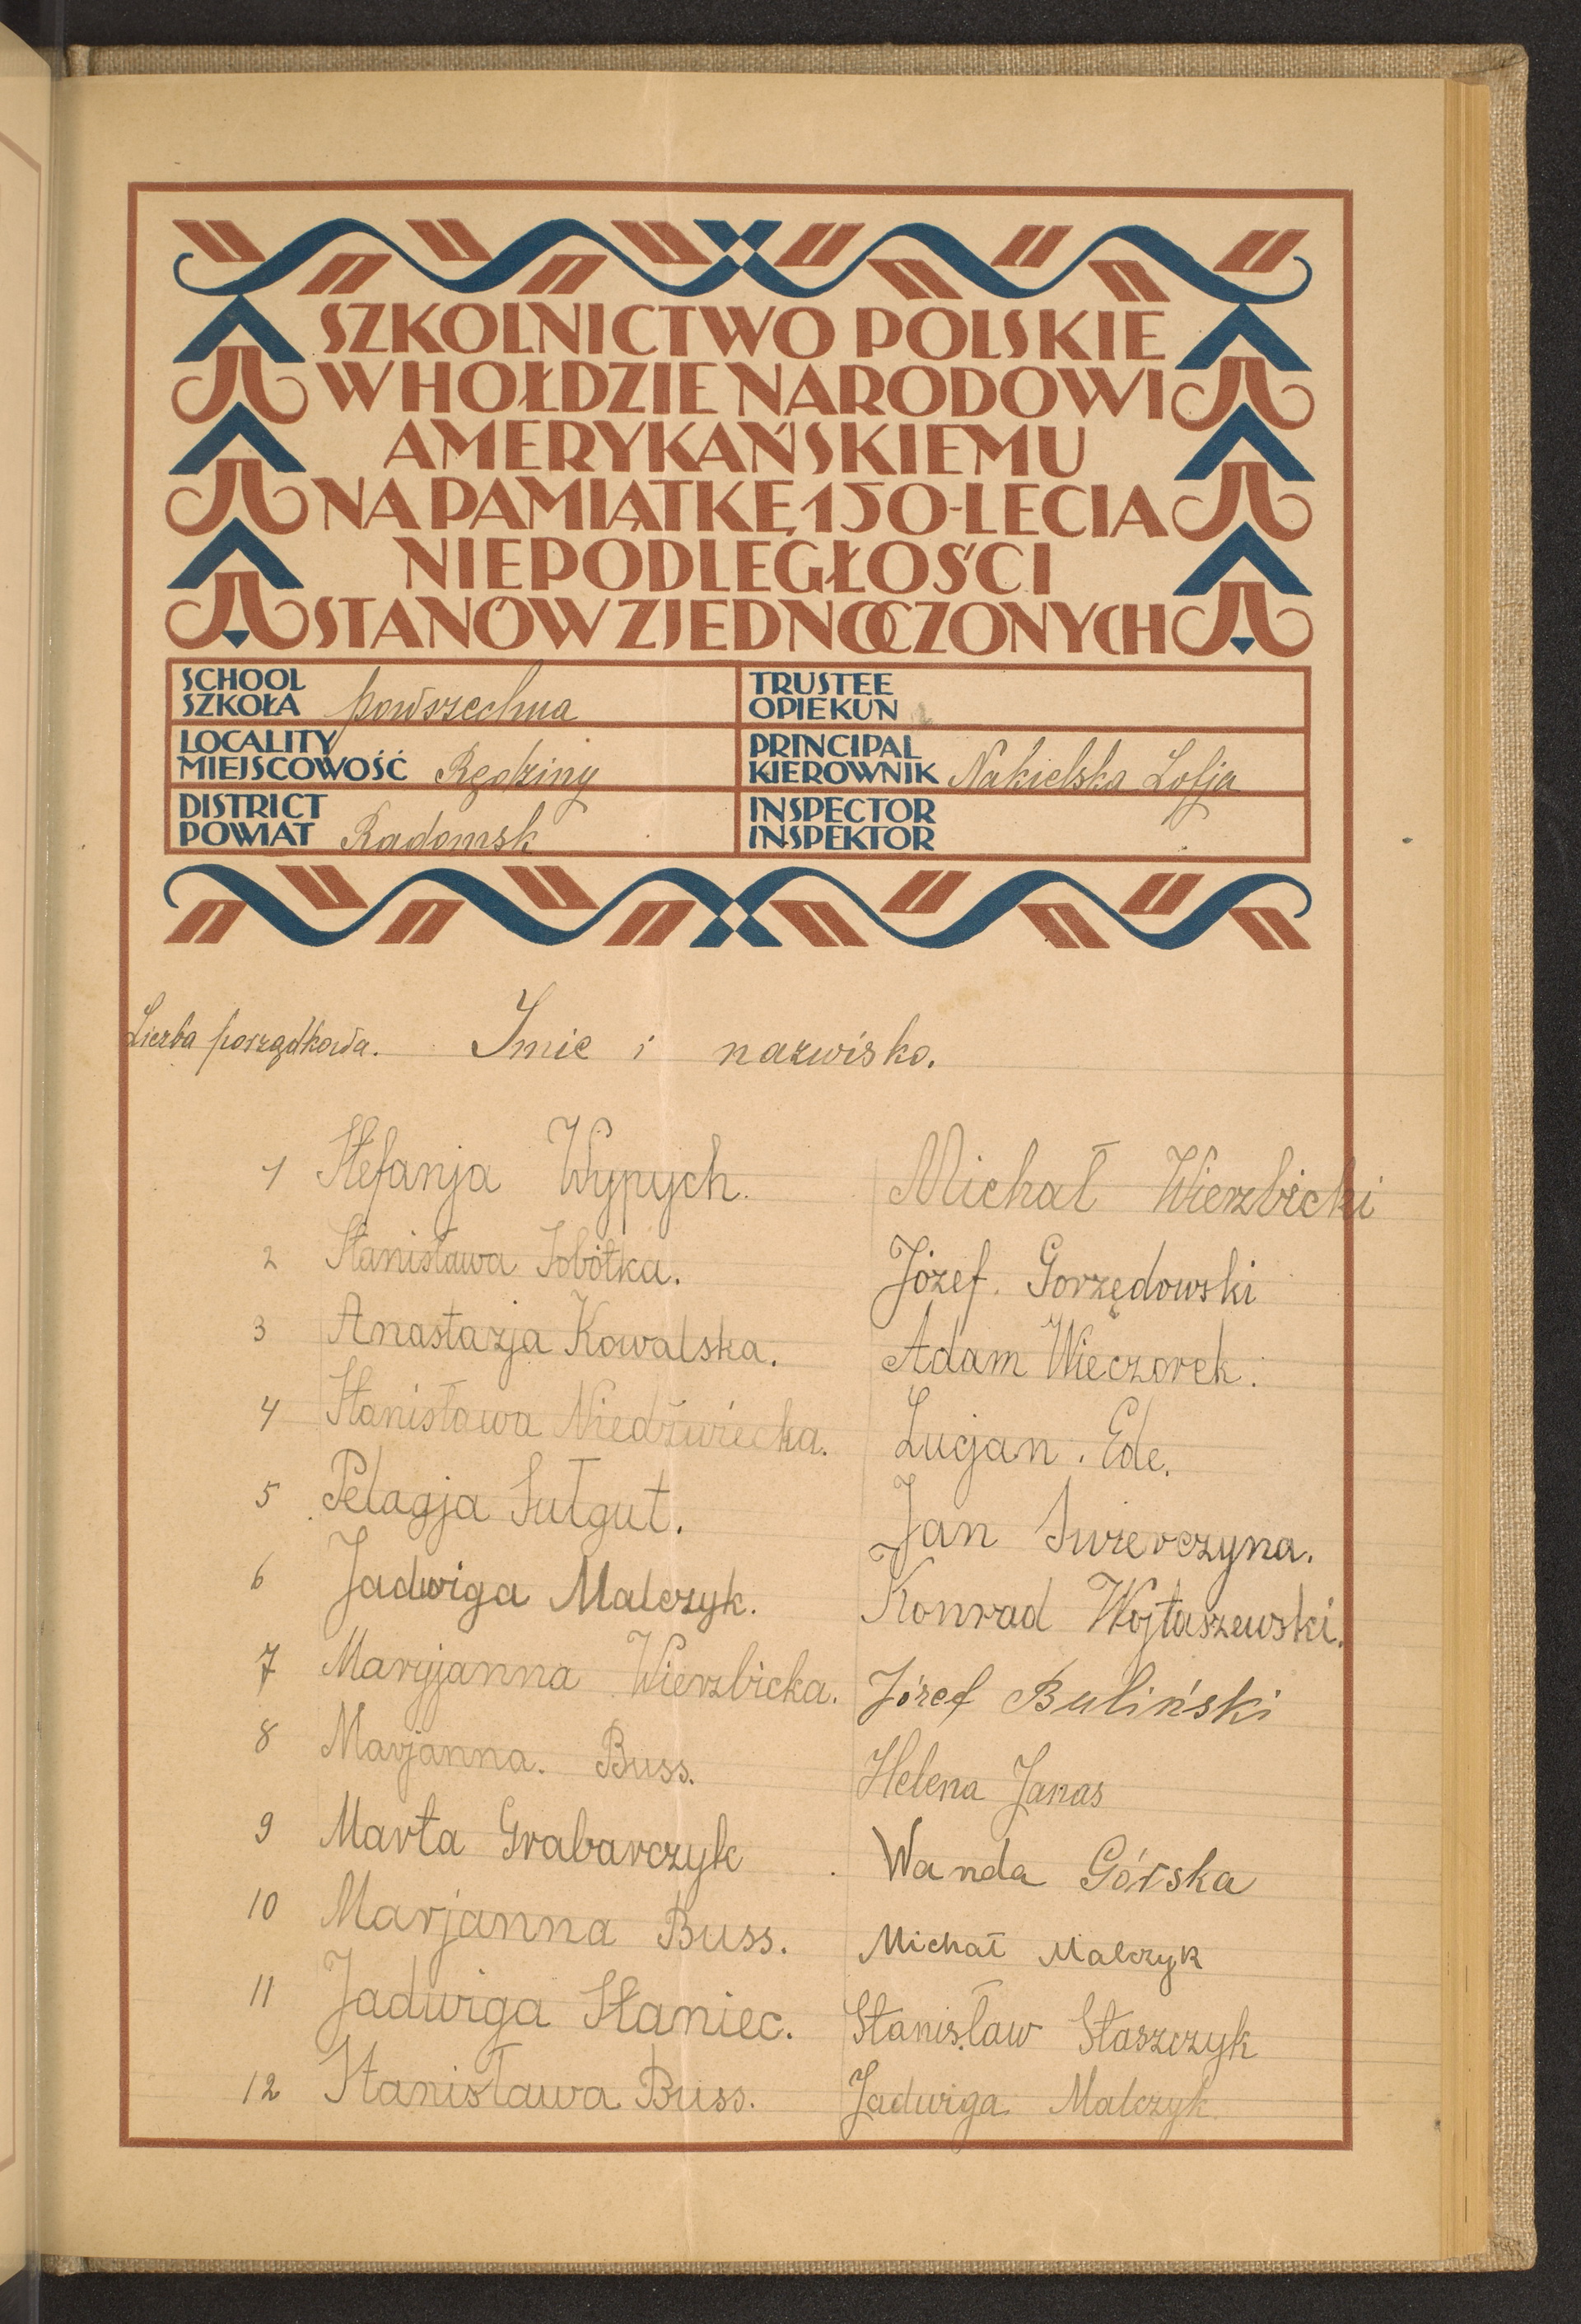 SZKOLNICTWO POLSKIE
W HOŁDZIE NARODOWI
AMERYKAŃSKIEMU
NA PAMIĄTKĘ 150-LECIA
NIEPODLEGŁOŚCI
STANÓW ZJEDNOCZONYCH
SCHOOL
SZKOŁA powszechna
TRUSTEE
OPIEKUN
LOCALITY
MIEJSCOWOŚĆ Rędziny
PRINCIPAL
KIEROWNIK Nakielska Zofja
DISTRICT
POWIAT Radomsk
INSPECTOR
INSPEKTOR
Liczba porządkowa. Imie i nazwisko.
1 Stefanja Wypych. Michał Wierzbicki
2 Stanisława Sobótka. Józef. Gorzędowski
3 Anastazja Kowalska. Adam Wieczorek.
4 Stanisława Niedźwiecka. Lucjan. Ede.
5 Pelagja Sułgut. Jan Swierczyna.
6 Jadwiga Malczyk. Konrad Wojtaszewski.
7 Maryjanna Wierzbicka. Józef Buliński
8 Marjanna. Buss. Helena Janas
9 Marta Grabarczyk Wanda Górska
10 Marjanna Buss. Michał Malczyk
11 Jadwiga Staniec. Stanisław Staszczyk
12 Stanisława Buss. Jadwiga Malczyk.